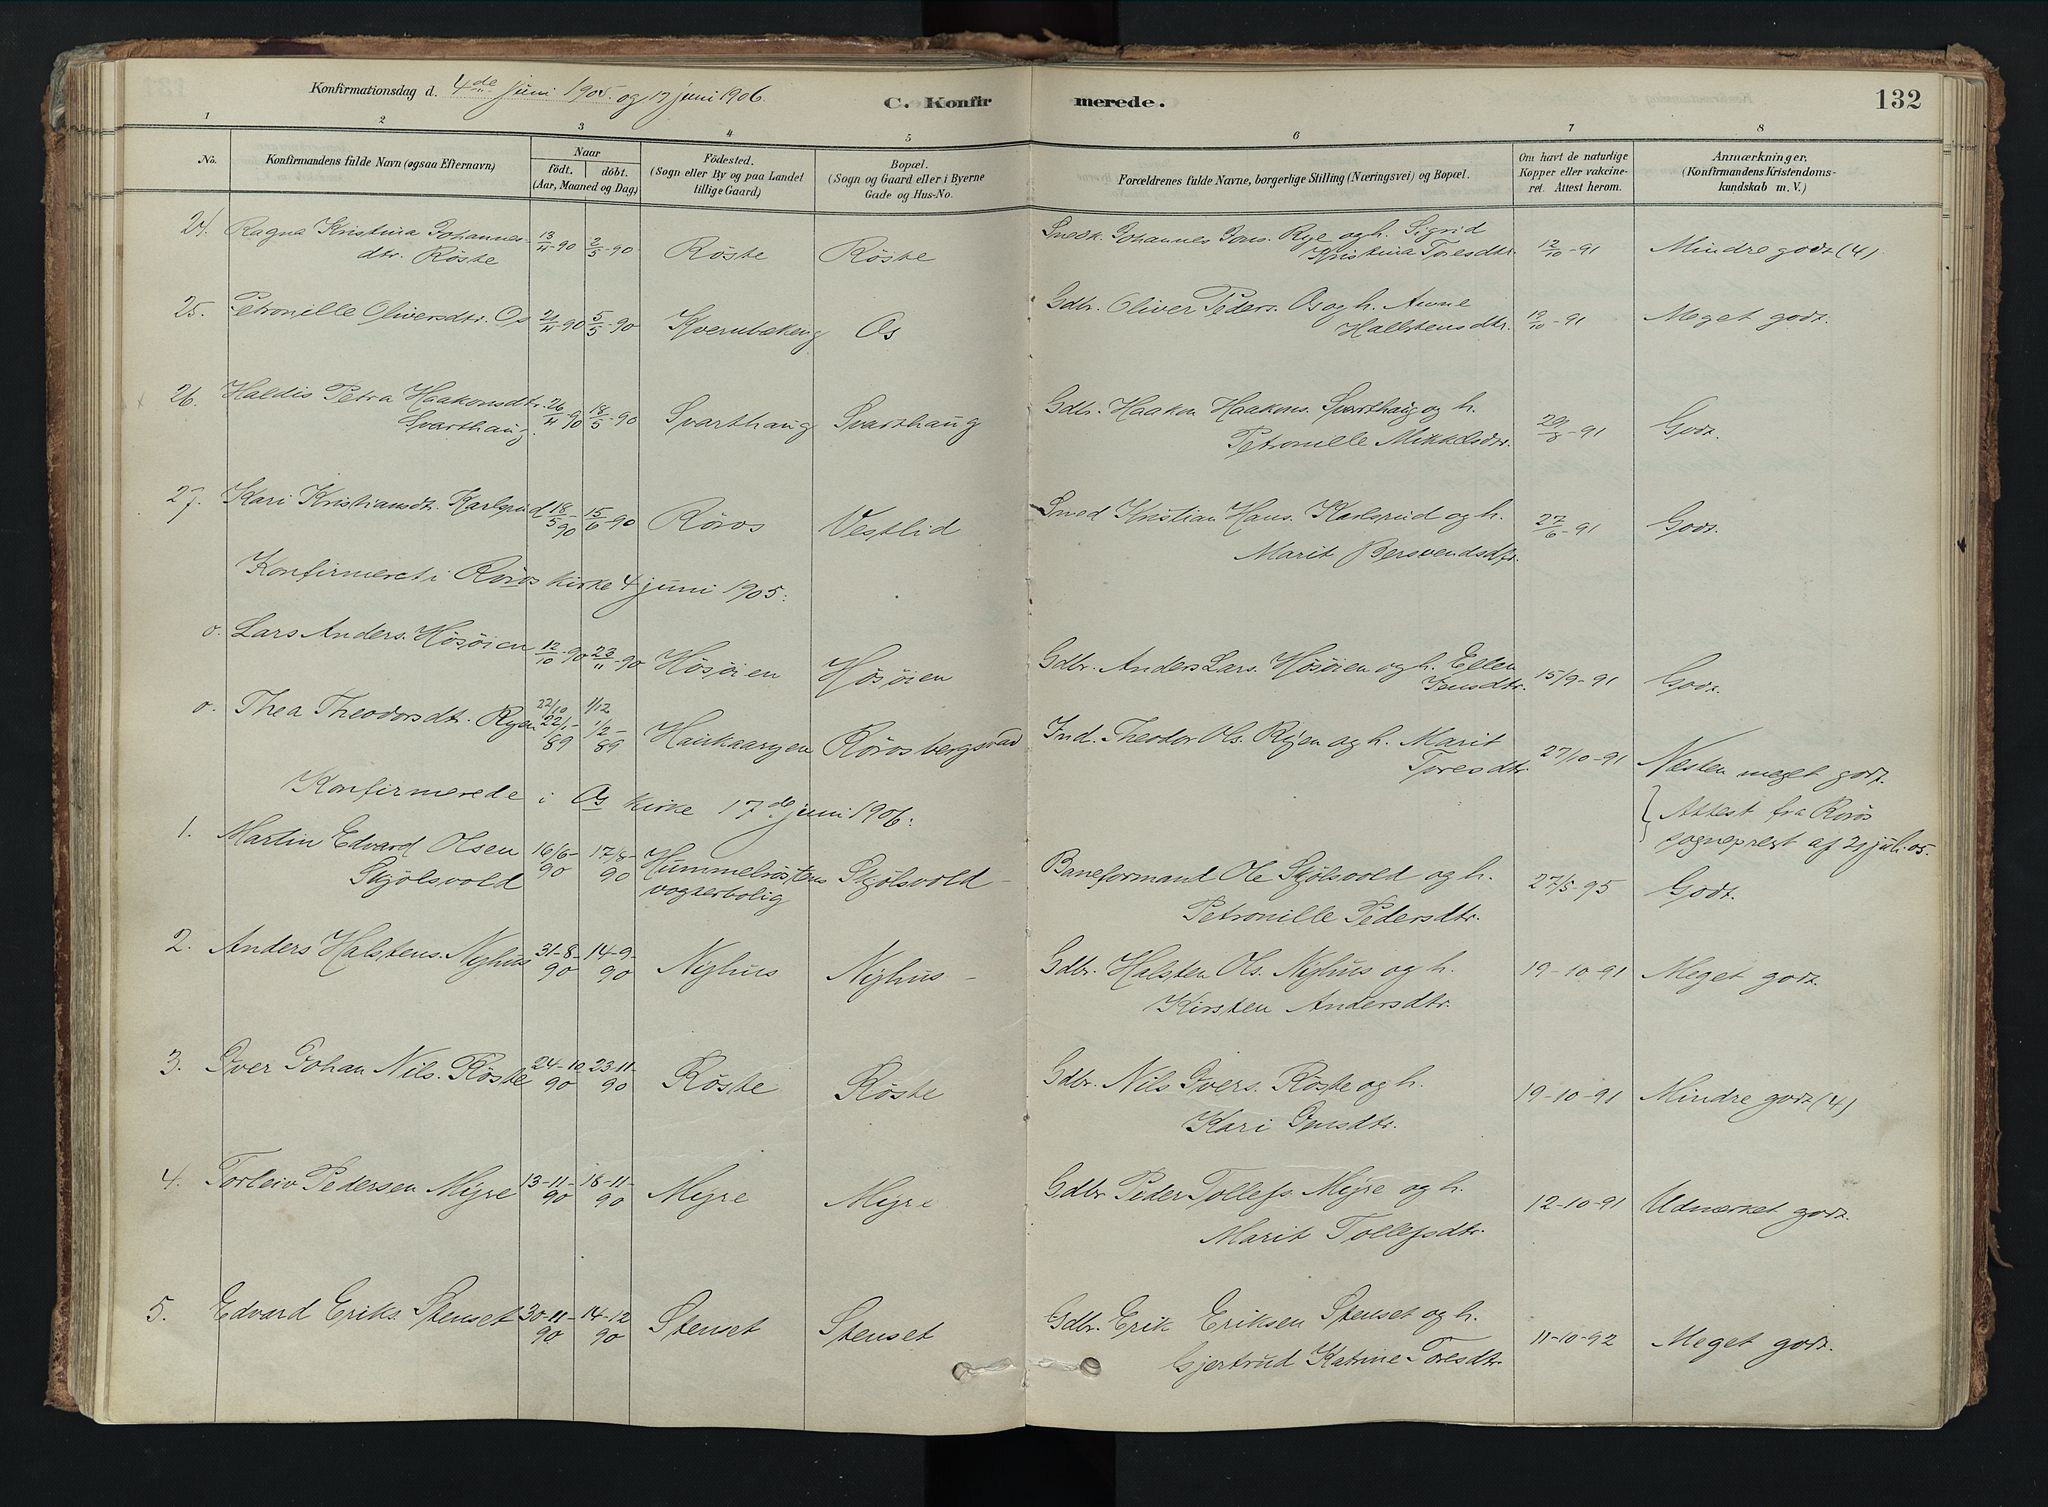 Konfirmationsdag d. 4de juni 1905 og 17 juni 1906.
C. Konfirmerede.
132
1 2 3 4 5 6 7 8
No.
Konfirmandens fulde Navn (ogsaa Efternavn)
Naar
födt. döbt.
(Aar, Maaned og Dag)
Födested.
(Sogn eller By og paa Landet
tillige Gaard)
Bopæl.
(Sogn og Gaard eller i Byerne
Gade og Hus-No.
Forældrenes fulde Navne, borgerlige Stilling (Næringsvei) og Bopæl.
Om havt de naturlige
Kopper eller vakcine-
ret. Attest herom.
Anmærkninger.
(Konfirmandens Kristendoms-
kundskab m. V.)
24. Ragna Kristina Johannes- 13/4-90 2/5-90 Röste Röste Snedk. Johannes Jons. Rye og h. Sigrid 12/10-91 Mindre godt (4)
dtr. Röste Kristina Toresdtr.
25. Petronille Oliversdtr. Os 21/4-90 5/5-90 Kvernbækeng Os Gdbr. Oliver Peders. Os og h. Anne 12/10-91 Meget godt.
Hallstensdtr.
26. Haldis Petra Haakonsdtr. 26/4-90 18/5-90 Svarthaug Svarthaug Gdbr. Haakon Haakons. Svarthaug og h. 29/8-91 Godt.
Svarthaug. Petronille Mikkelsdtr.
27. Kari Kristiansdt. Karlsrud 18/5-90 15/6-90 Röros Vestlid Smed Kristian Hans. Karlsrud og h. 27/6-91 Godt.
Marit Bersvendsdtr.
Konfirmeret i Röros kirke 4 juni 1905:
o. Lars Anders. Høsøien 12/10-90 23/11-90 Høsøien Høsøien Gdbr. Anders Lars. Høsøien og h. Ellen 15/9-91 Godt.
Jensdtr.
22/10 1/12
o. Thea Theodorsdt. Ryen 22/1-89 1/2-89 Haukaaryen Röros bergstad Ind. Theodor Ols. Ryen og h. Marit 27/10-91 Næsten meget godt.
Toresdtr.
Konfirmerede i Os kirke 17de juni 1906:
Attest fra Røros
sogneprest af 21 juli 05.
1. Martin Edvard Olsen 16/6-90 17/8-90 Hummelvos, ... Skjølsvold Baneformand Ole Skjølsvold og h. 27/5-95 Godt.
Skjølsvold vogterbolig Petronille Pedersdtr.
2. Anders Halstens. Nyhus 31-8-90 14-9-90 Nyhus Nyhus Gdbr. Halsten Ols. Nyhus og h. 19-10-91 Meget godt.
Kirsten Andersdtr.
3. Iver Johan Nils. Röste 24-10-90 23-11-90 Röste Röste Gdbr. Nils Ivers. Röste og h. 19-10-91 Mindre godt (4)
Kari Jonsdtr.
4. Torleiv Pedersen Myre 13-11-90 16-11-90 Myre Myre Gdbr. Peder Tollefs. Myre og h. 12-10-91 Udmærket godt.
Marit Tollefsdtr.
5. Edvard Eriks. Stenset 30-11-90 14-12-90 Stenset Stenset Gdbr. Erik Eriksen Stenset og h. 11-10-92 Meget godt.
Gjertrud Katrine Toresdtr.